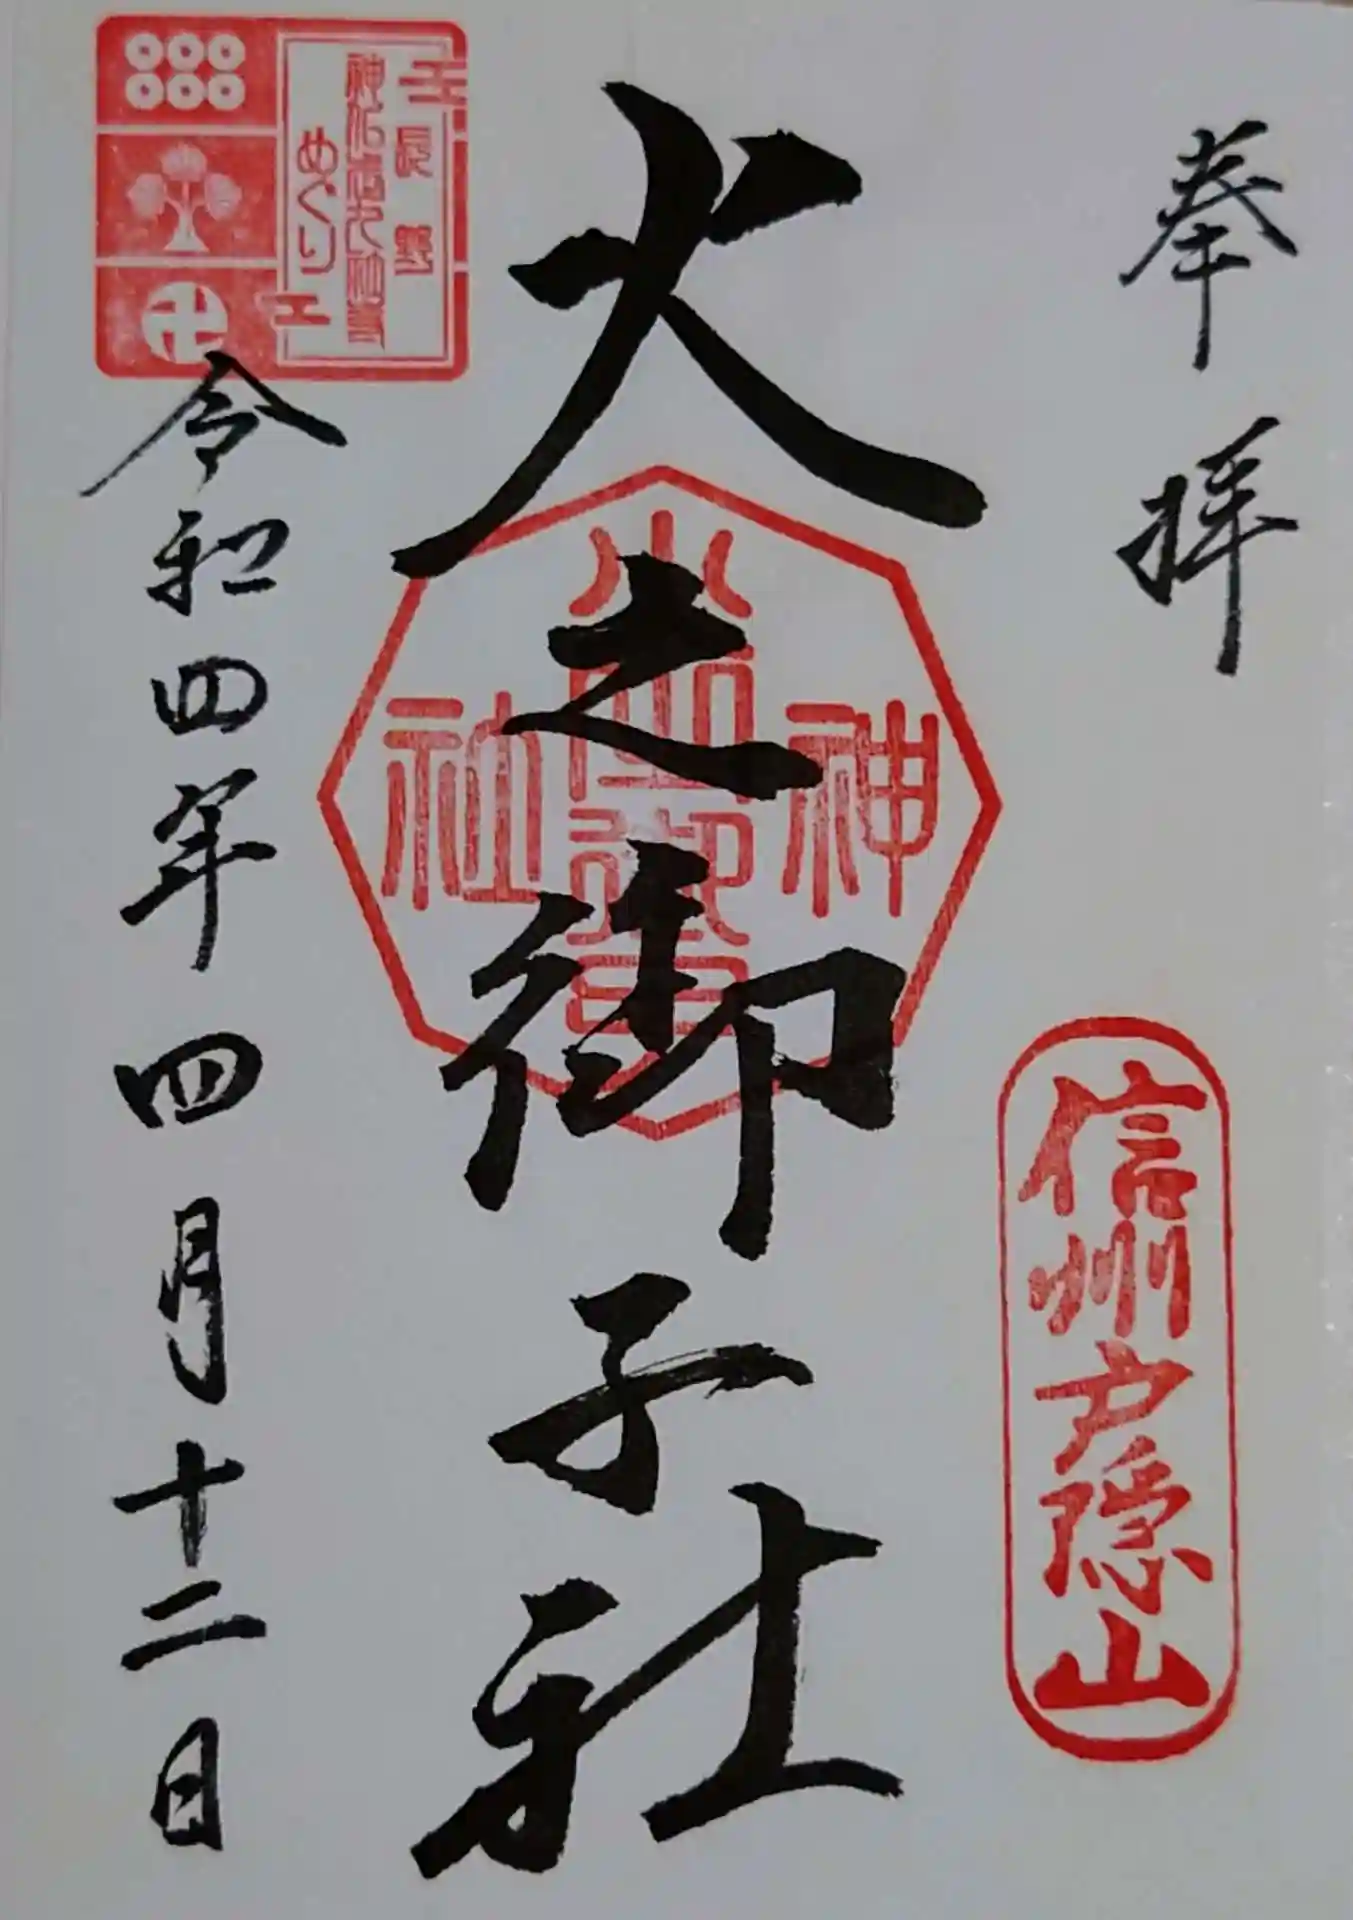 奉拝
信州戸隠山
火之御子社
神社
長野
神仏
めぐり
令和四年四月十二日